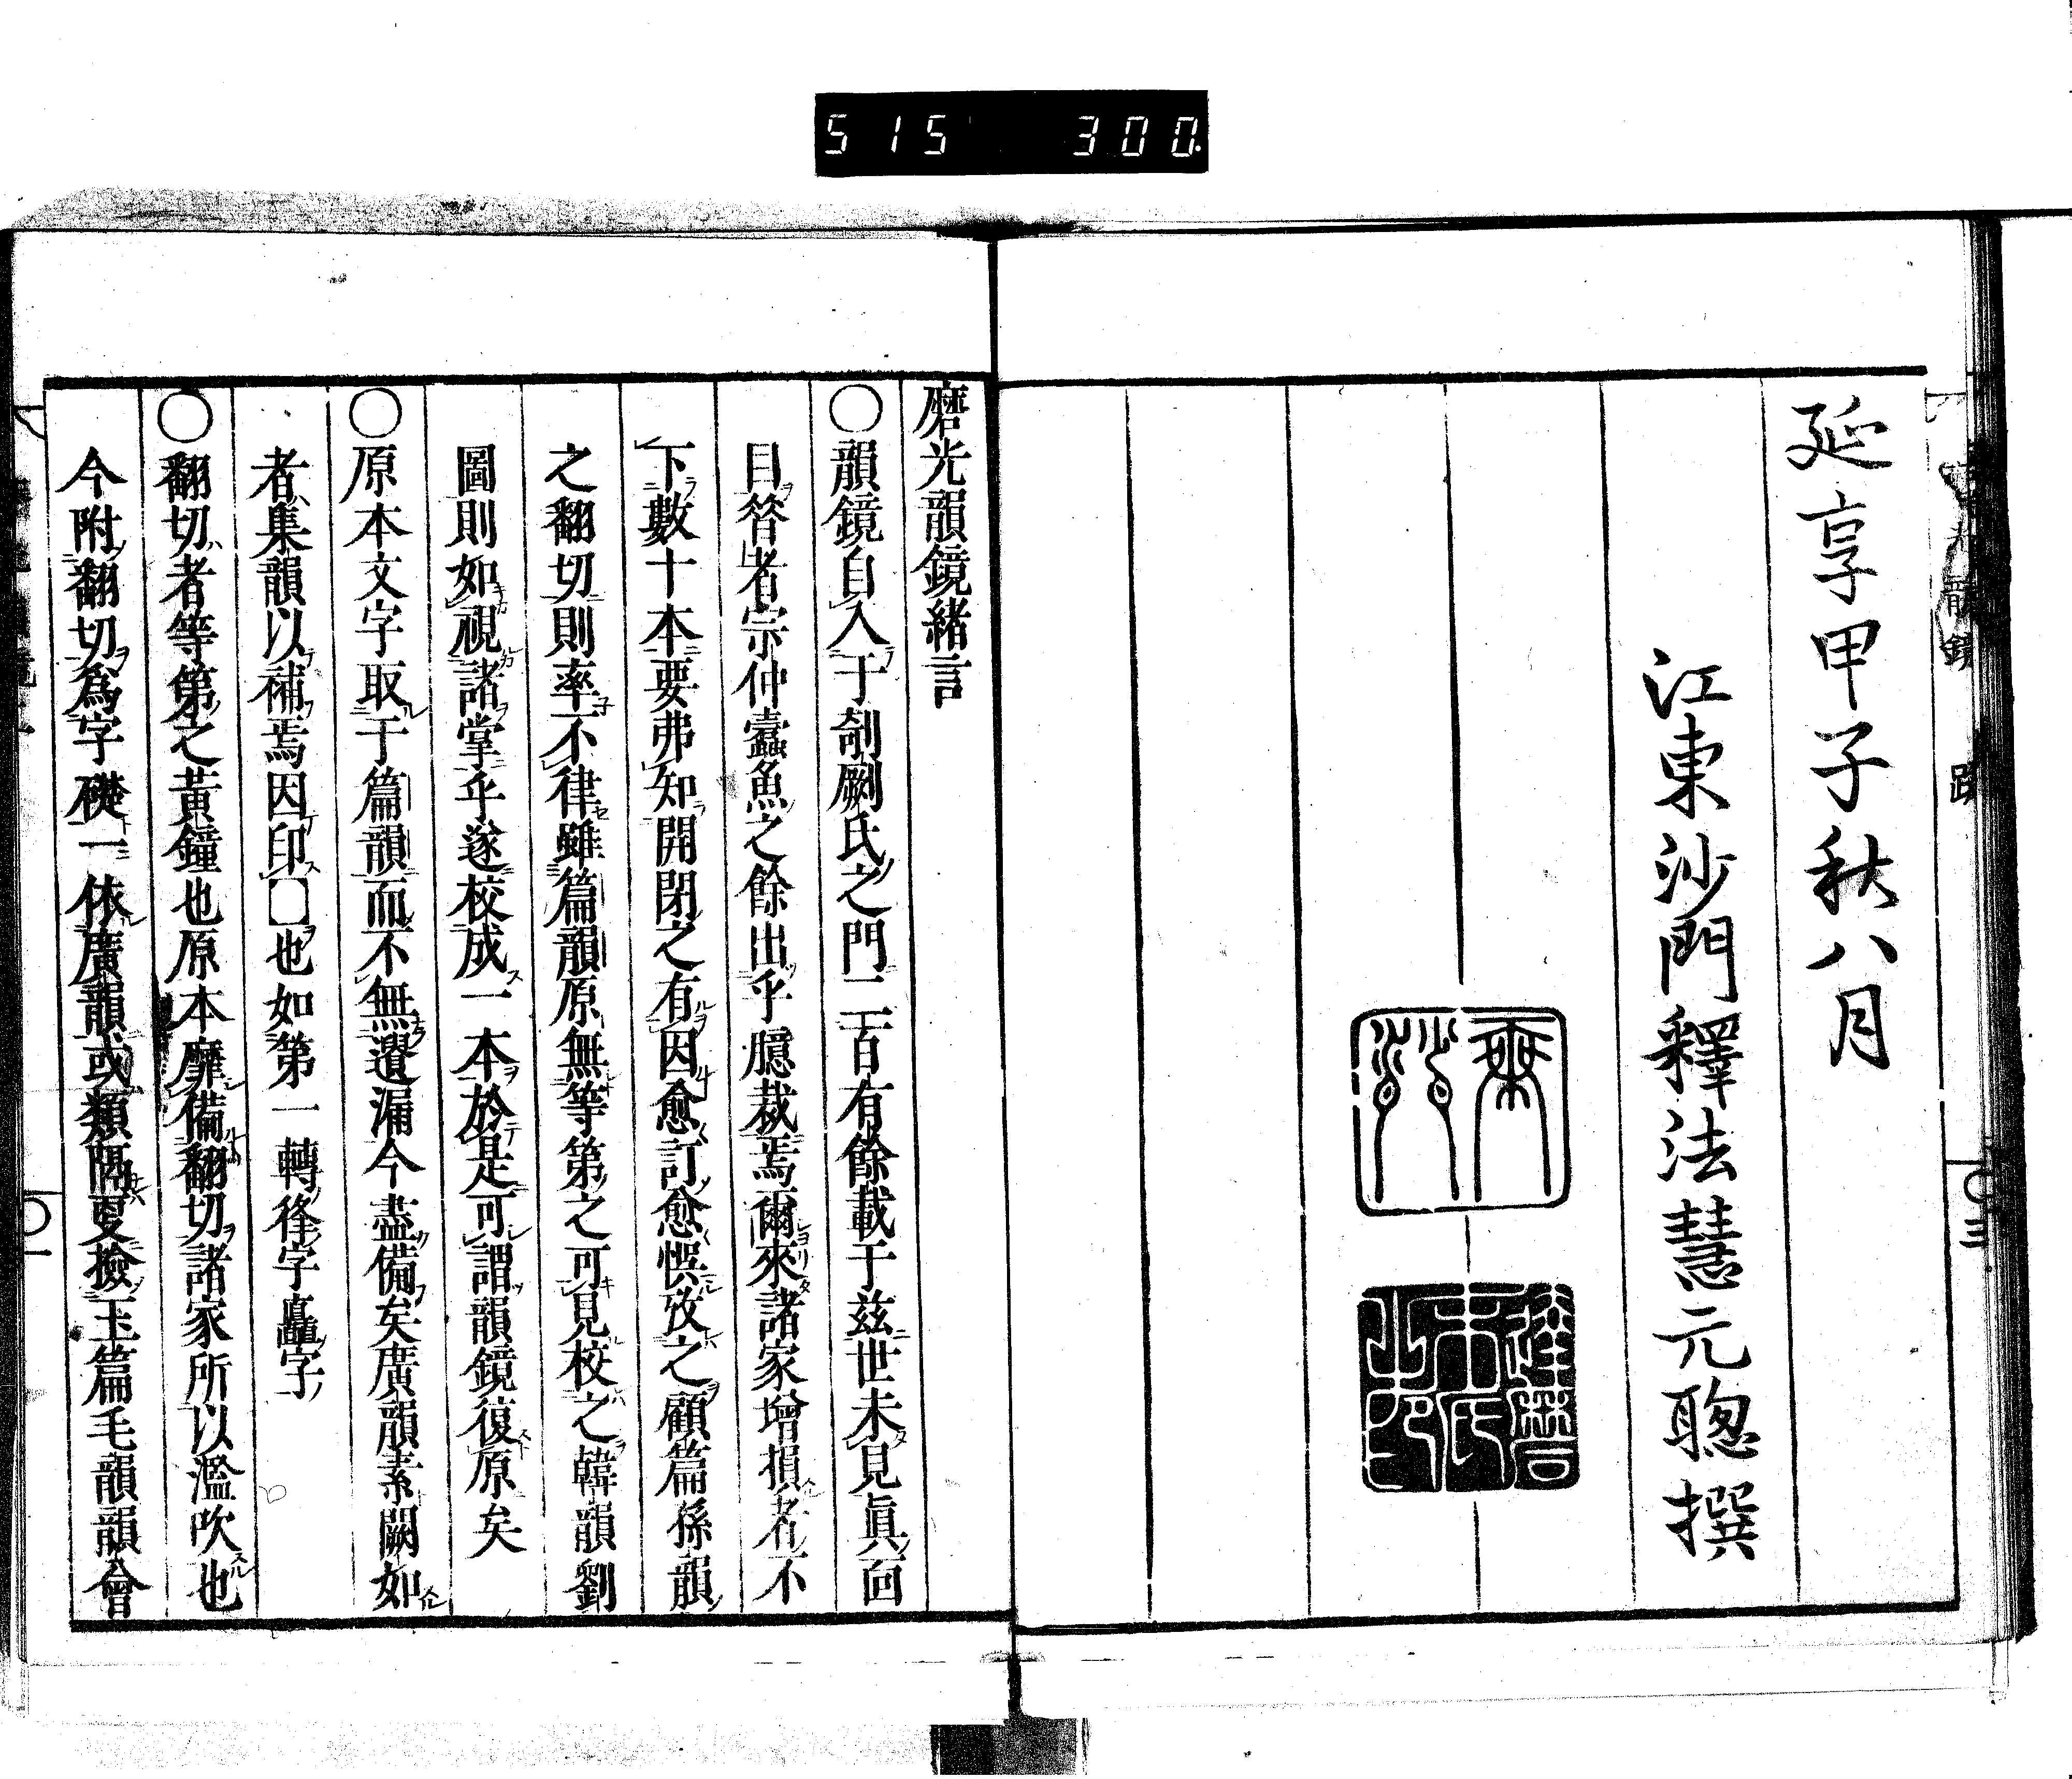 515 300
延享甲子秋八月
江東沙門釋法慧元聰撰
磨光韻鏡緒言
〇韻鏡自入于剞劂氏之門二百有餘載于茲世未見眞面
目咎者宗仲蠧魚之餘出乎臆裁焉爾來諸家增損者不
下數十本要弗知開閉之有因愈訂愈悞攷之顧篇孫韻
之翻切則率不律雖篇韻原無等第之可見校之韓韻劉
圖則如視諸掌乎遂校成一本於是可謂韻鏡復原矣
〇原本文字取于篇韻而不無遺漏今盡備矣廣韻素闕如
者集韻以補焉因印□也如第一轉字字
〇翻切者等第之黃鐘也原本靡備翻切諸家所以濫吹也
今附翻切爲字礎一依廣韻或類隔更撿玉篇毛韻韻會